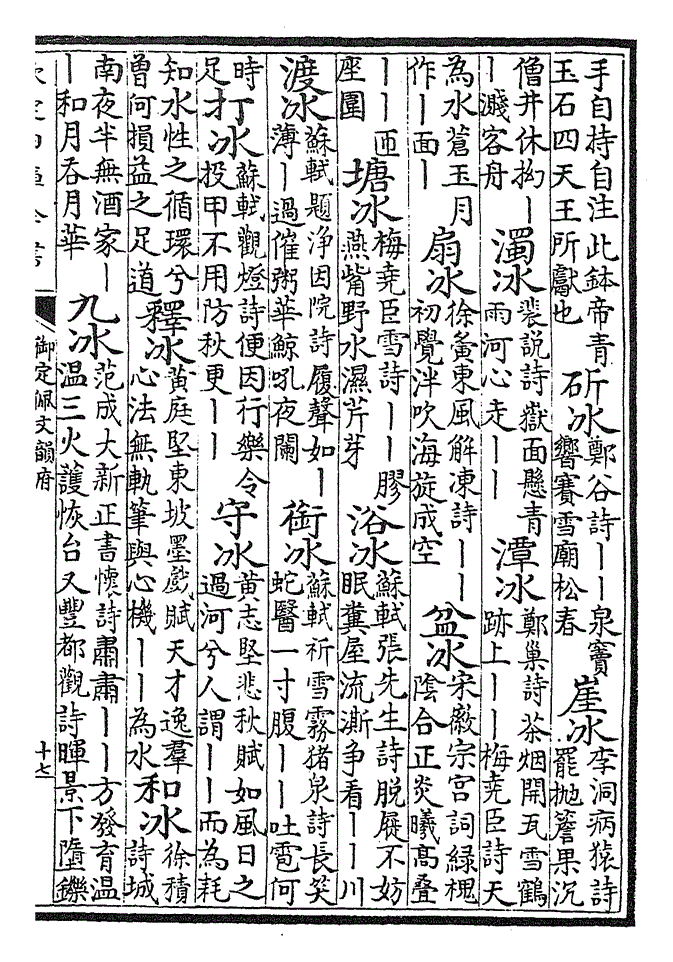 手自持自注此鉢帝青
玉石四天王所獻也
斫冰
鄭谷詩――泉竇
響賽雪廟松春
崖冰
李洞病猿詩
罷拋簷果沉
僧井休拗―
―濺客舟
濁冰
裴説詩嶽面懸青
雨河心走――
潭冰
鄭巢詩茶烟開瓦雪鶴
跡上――梅堯臣詩天
為水蒼玉月
作―面―
扇冰
徐夤東風解凍詩――
初覺泮吹海旋成空
盆冰
宋徽宗宮詞綠槐
陰合正炎曦高疊
――匝
座圍
塘冰
梅堯臣雪詩――膠
燕觜野水濕芹芽
浴冰
蘇軾張先生詩脱屣不妨
眠糞屋流澌爭看――川
渡冰
蘇軾題淨因院詩履聲如―
薄―過催粥華鯨吼夜闌
銜冰
蘇軾祈雪霧猪泉詩長笑
蛇醫一寸腹――吐雹何
時
足
打冰
蘇軾觀燈詩便因行樂令
投甲不用防秋更――
守冰
黄志堅悲秋賦如風日之
過河兮人謂――而為耗
知水性之循環兮
曾何損益之足道
釋冰
黄庭堅東坡墨戲賦天才逸羣
心法無軌筆與心機――為水
和冰
徐積
詩城
南夜半無酒家―
―和月吞月華
九冰
范成大新正書懷詩肅肅――方發育温
温三火護恢台又豐都觀詩暉景下墮鑠
御定佩文韻府
十七